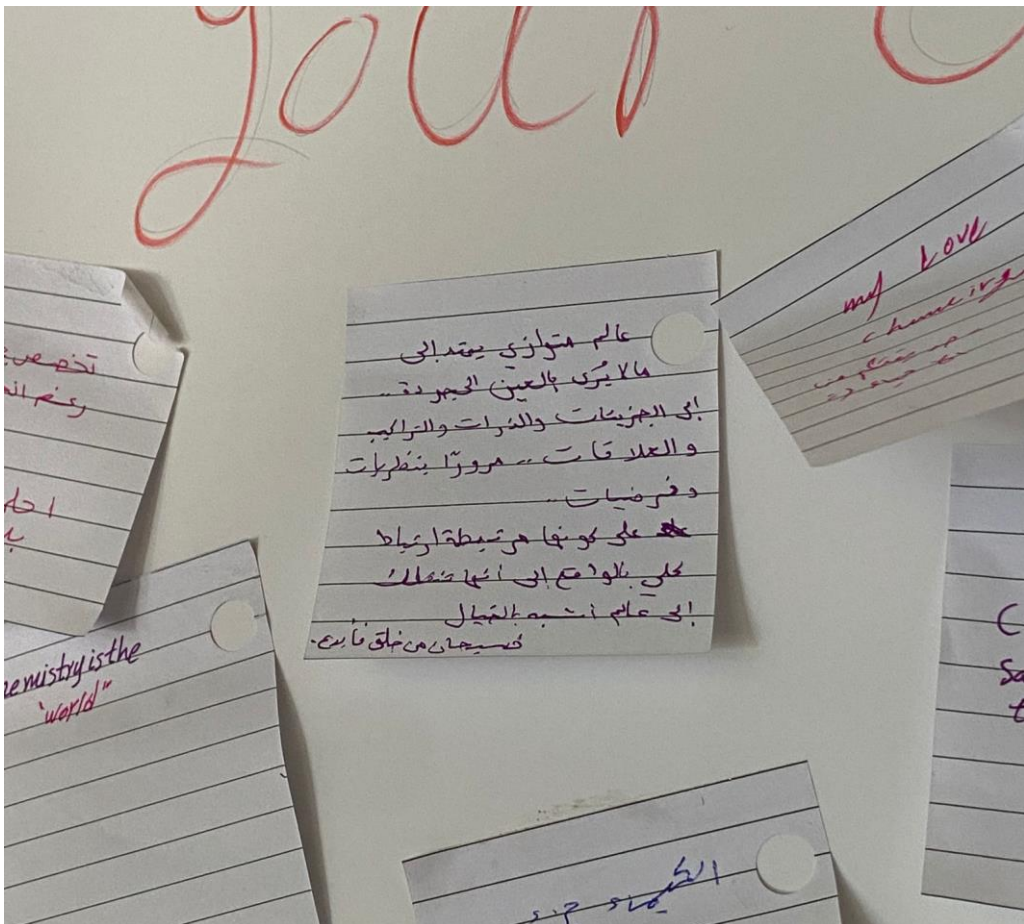 your
my Love
عالم متوازي يمتد إلى
مالا يُرى بالعين المجردة..
إلى الجزيئات والذرات والتراكيب
والعلاقات.. مرورًا بنظريات
وفرضيات..
على كونها مرتبطة ارتباط
كلي بالواقع إلى أنها تنقلك
إلى عالم أشبه بالخيال
فسبحان من خلق فأبدع.
تخصص
رغم
emistry is the
"world"
الكيمياء